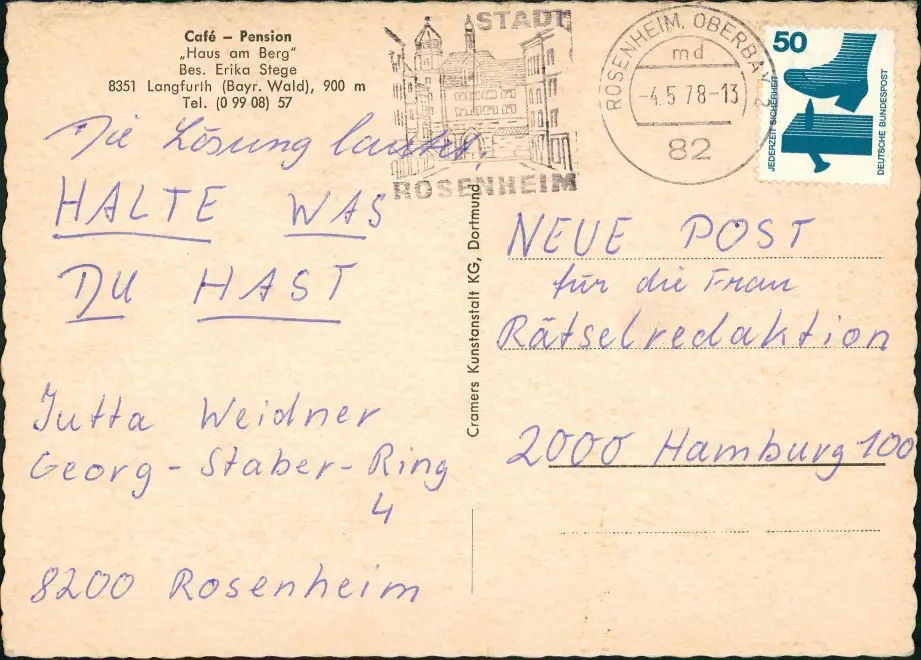 Café – Pension
„Haus am Berg"
Bes. Erika Stege
8351 Langfurth (Bayr. Wald), 900 m
Tel. (0 99 08) 57
Die Lösung lautet:
HALTE WAS
DU HAST
Jutta Weidner
Georg-Staber-Ring
4
8200 Rosenheim
STADT
ROSENHEIM
ROSENHEIM, OBERBAY 2
md
-4.5.78-13
82
50
JEDERZEIT SICHERHEIT
DEUTSCHE BUNDESPOST
Cramers Kunstanstalt KG, Dortmund
NEUE POST
für die Frau
Rätselredaktion
2000 Hamburg 100